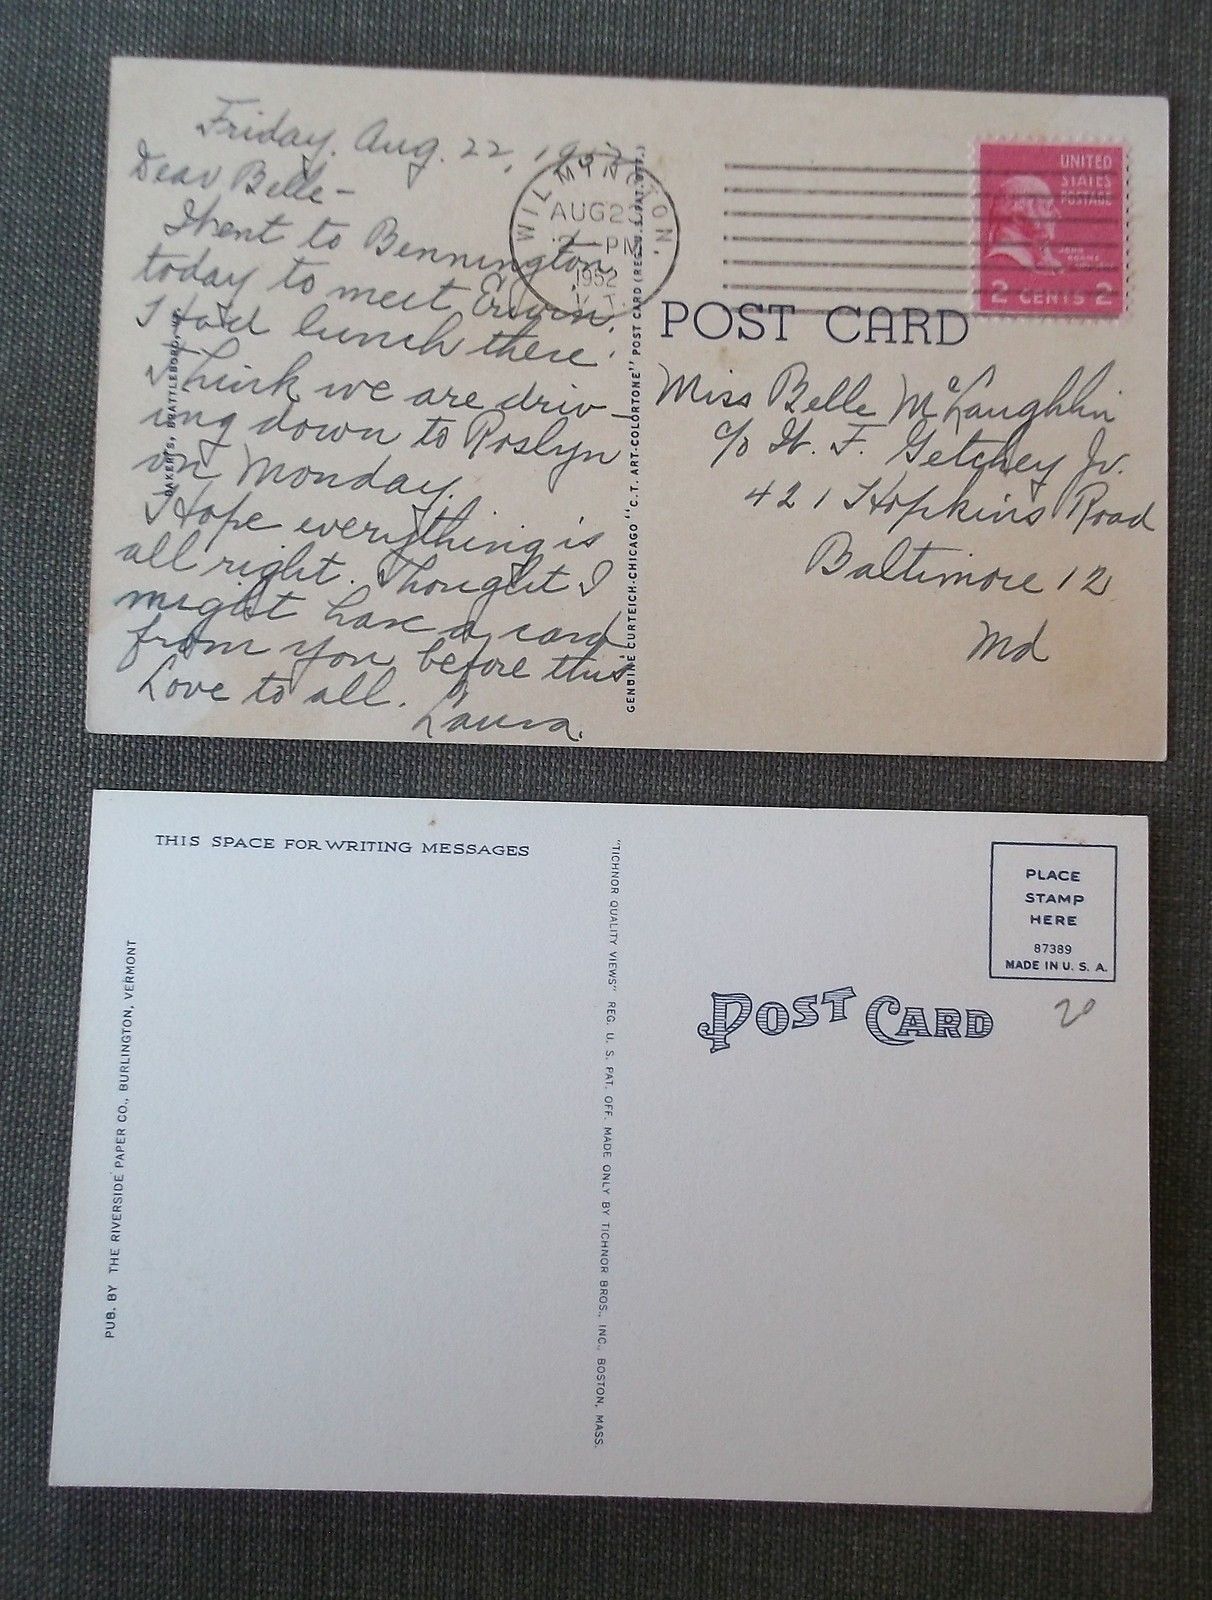 Friday, Aug. 22, 1952
Dear Belle –
Went to Bennington
today to meet Erwin.
Had lunch there.
Think we are driv-
ing down to Roslyn
on Monday.
Hope everything is
all right. Thought I
might have a card
from you before this.
Love to all. Laura.
WILMINGTON,
AUG 23
PM
1952
VT.
UNITED
STATES
POSTAGE
JOHN
ADAMS
2 CENTS 2
POST CARD
Miss Belle McLaughlin
c/o W. F. Getchey Jr.
421 Hopkins Road
Baltimore 12
Md
BRATTLEBORO,
GENUINE CURTEICH-CHICAGO "C.T. ART-COLORTONE" POST CARD (REG. U.S. PAT. OFF.)
THIS SPACE FOR WRITING MESSAGES
PUB. BY THE RIVERSIDE PAPER CO., BURLINGTON, VERMONT
"TICHNOR QUALITY VIEWS" REG. U. S. PAT. OFF. MADE ONLY BY TICHNOR BROS., INC., BOSTON, MASS.
PLACE
STAMP
HERE
87389
MADE IN U. S. A.
POST CARD
20